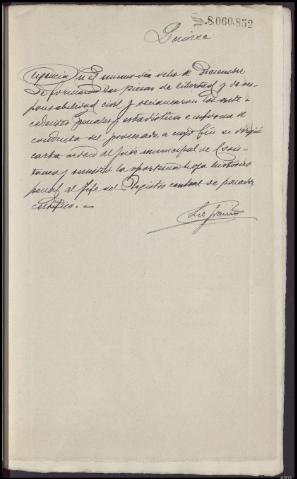 N. 8.060.852
Quince
Diligencia En el mismo dia ocho de Diciembre
se formaron las piezas de libertad y de res-
ponsabilidad civil y reclamaron los ante-
cedentes penales y estadistica e informe de
conducta del procesado, a cuyo fin se dirigió
carta-orden al Juez municipal de
y la oportuna hoja historico
penal al Jefe del Registro central de penados
certifico. =